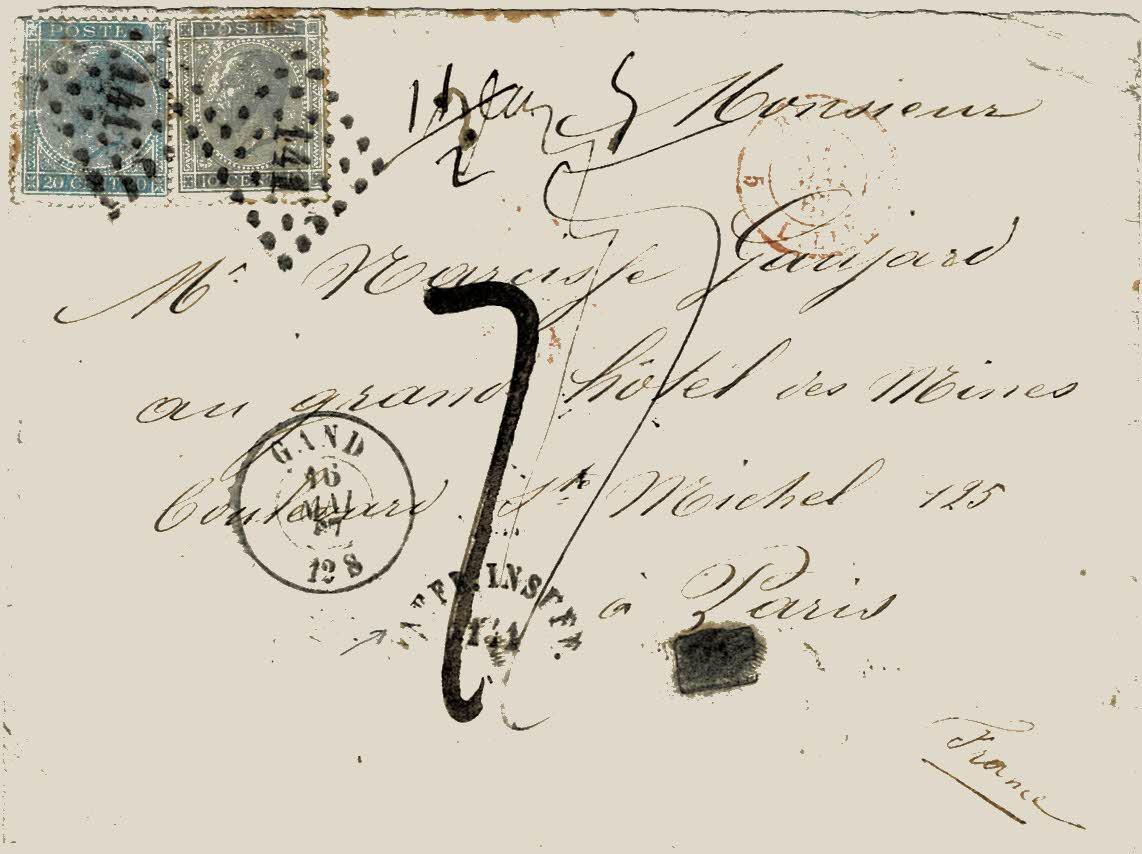 POSTES POSTES
20 CENT 20 10 CE
141 141
Monsieur
2
5
Mr Narcisse Gaujard
au grand hôtel des Mines
GAND
16
MAI
67
12 S
Boulevard St Michel 125
AFFR. INSUFF
141
à Paris
France